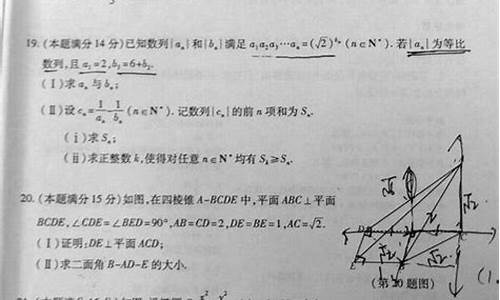 19. (本题满分14分)已知数列{aₙ}和{bₙ}满足a₁a₂a₃…aₙ=(√2)^bₙ (n∈N*). 若{aₙ}为等比
数列,且a₁=2,b₃=6+b₂.
(Ⅰ)求aₙ与bₙ;
(Ⅱ)设cₙ=1/aₙ-1/bₙ(n∈N*). 记数列{cₙ}的前n项和为Sₙ.
(ⅰ)求Sₙ;
(ⅱ)求正整数k,使得对任意n∈N*均有Sₖ≥Sₙ.
20. (本题满分15分)如图,在四棱锥A-BCDE中,平面ABC⊥平面
BCDE,∠CDE=∠BED=90°,AB=CD=2,DE=BE=1,AC=√2.
(Ⅰ)证明:DE⊥平面ACD;
(Ⅱ)求二面角B-AD-E的大小.
(第20题图)
√2
√2
(1.